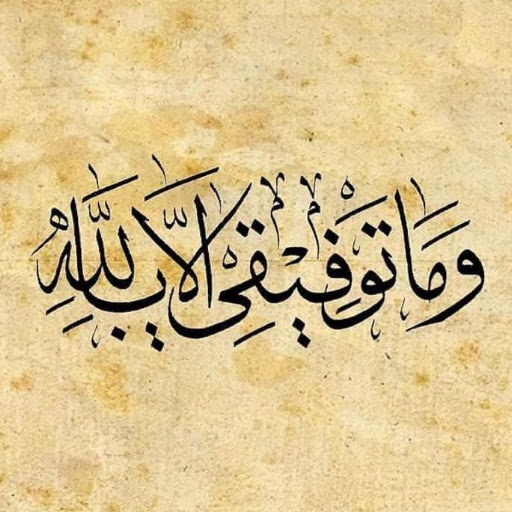 وَمَا تَوْفِيْقِي اِلَّا بِاللّٰهِ